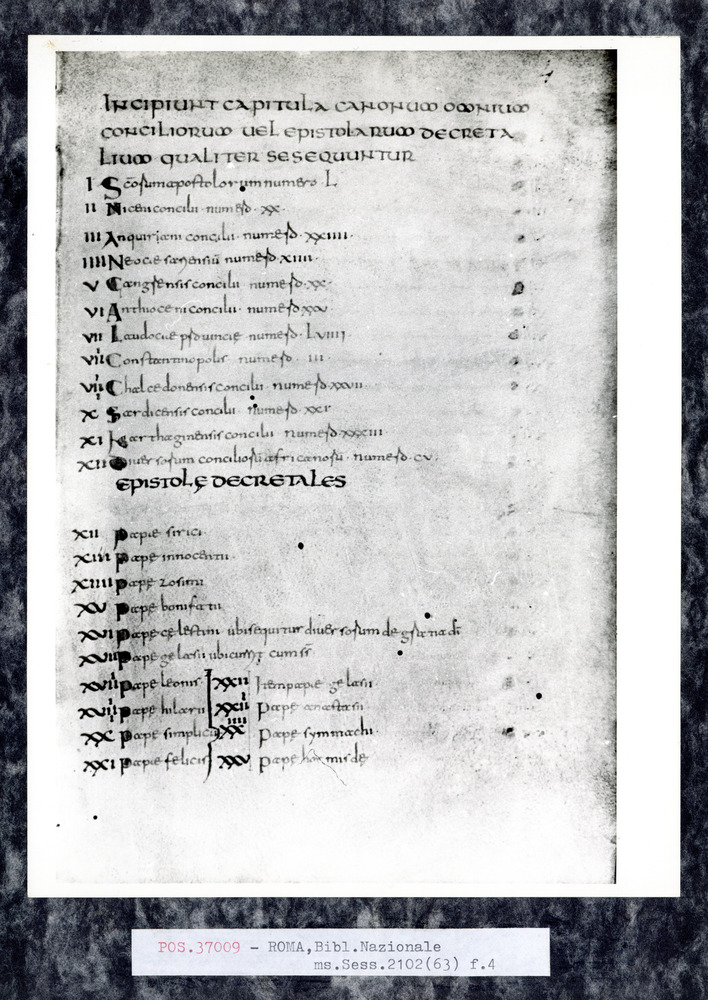 INCIPIUNT CAPITULA CANONUM OMNIUM
CONCILIORUM UEL EPISTOLARUM DECRETA
LIUM QUALITER SESEQUUNTUR
I Scorum apostolorum numero L
II Niceni concilii numero XX
III Anquirani concilii numero XXIIII
IIII Neocesariensiu concilii numero XIIII
V Gangrensis concilii numero XX
VI Anthioceni concilii numero XXV
VII Laudocie prouincie numero LVIIII
VIII Constantinopolis numero III
VIIII Chalcedonensis concilii numero XXVII
X Sardicensis concilii numero XXI
XI Karthaginensis concilii numero XXXIII
XII Diuersorum conciliorū africanorū numero CV
EPISTOLĘ DECRETALES
XII Papae sirici
XIII Papę innocentii
XIIII Papę zosimi
XV Papę bonifatii
XVI Papę cęlestini ubi sequitur diuersorum de gratia di
XVII Papę gelasii ubi cum
XVIII Papę leonis XXII Item papę gelasii
XVIIII Papę hilarii XXIII Papę anastasii
XX Papę simplicii XXIIII Papę symmachi
XXI Papę felicis XXV Papę hormisde
POS.37009 - ROMA,Bibl.Nazionale
ms.Sess.2102(63) f.4